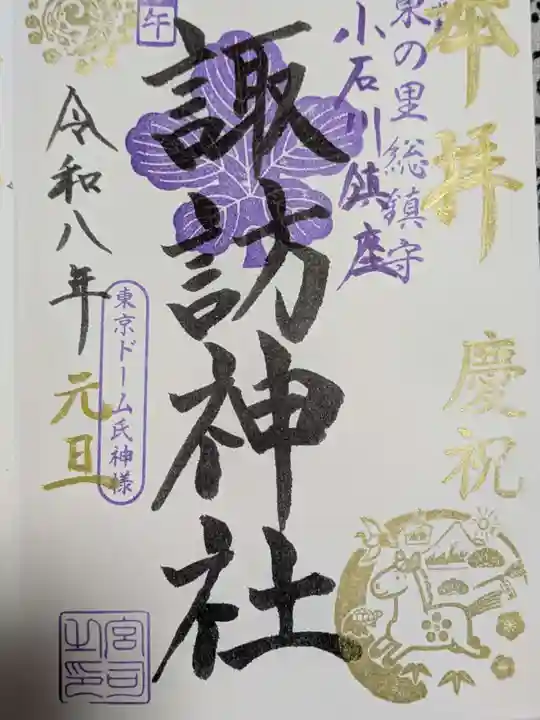 奉拝
慶祝
東の里総鎮守
小石川鎮座
諏訪神社
午
東京ドーム氏神様
令和八年
元旦
宮司之印